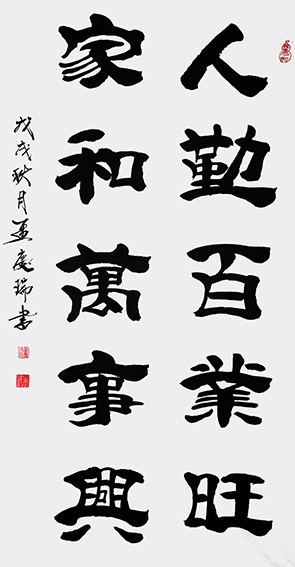 人勤百業旺
家和萬事興
戊戌秋月孟慶瑞書